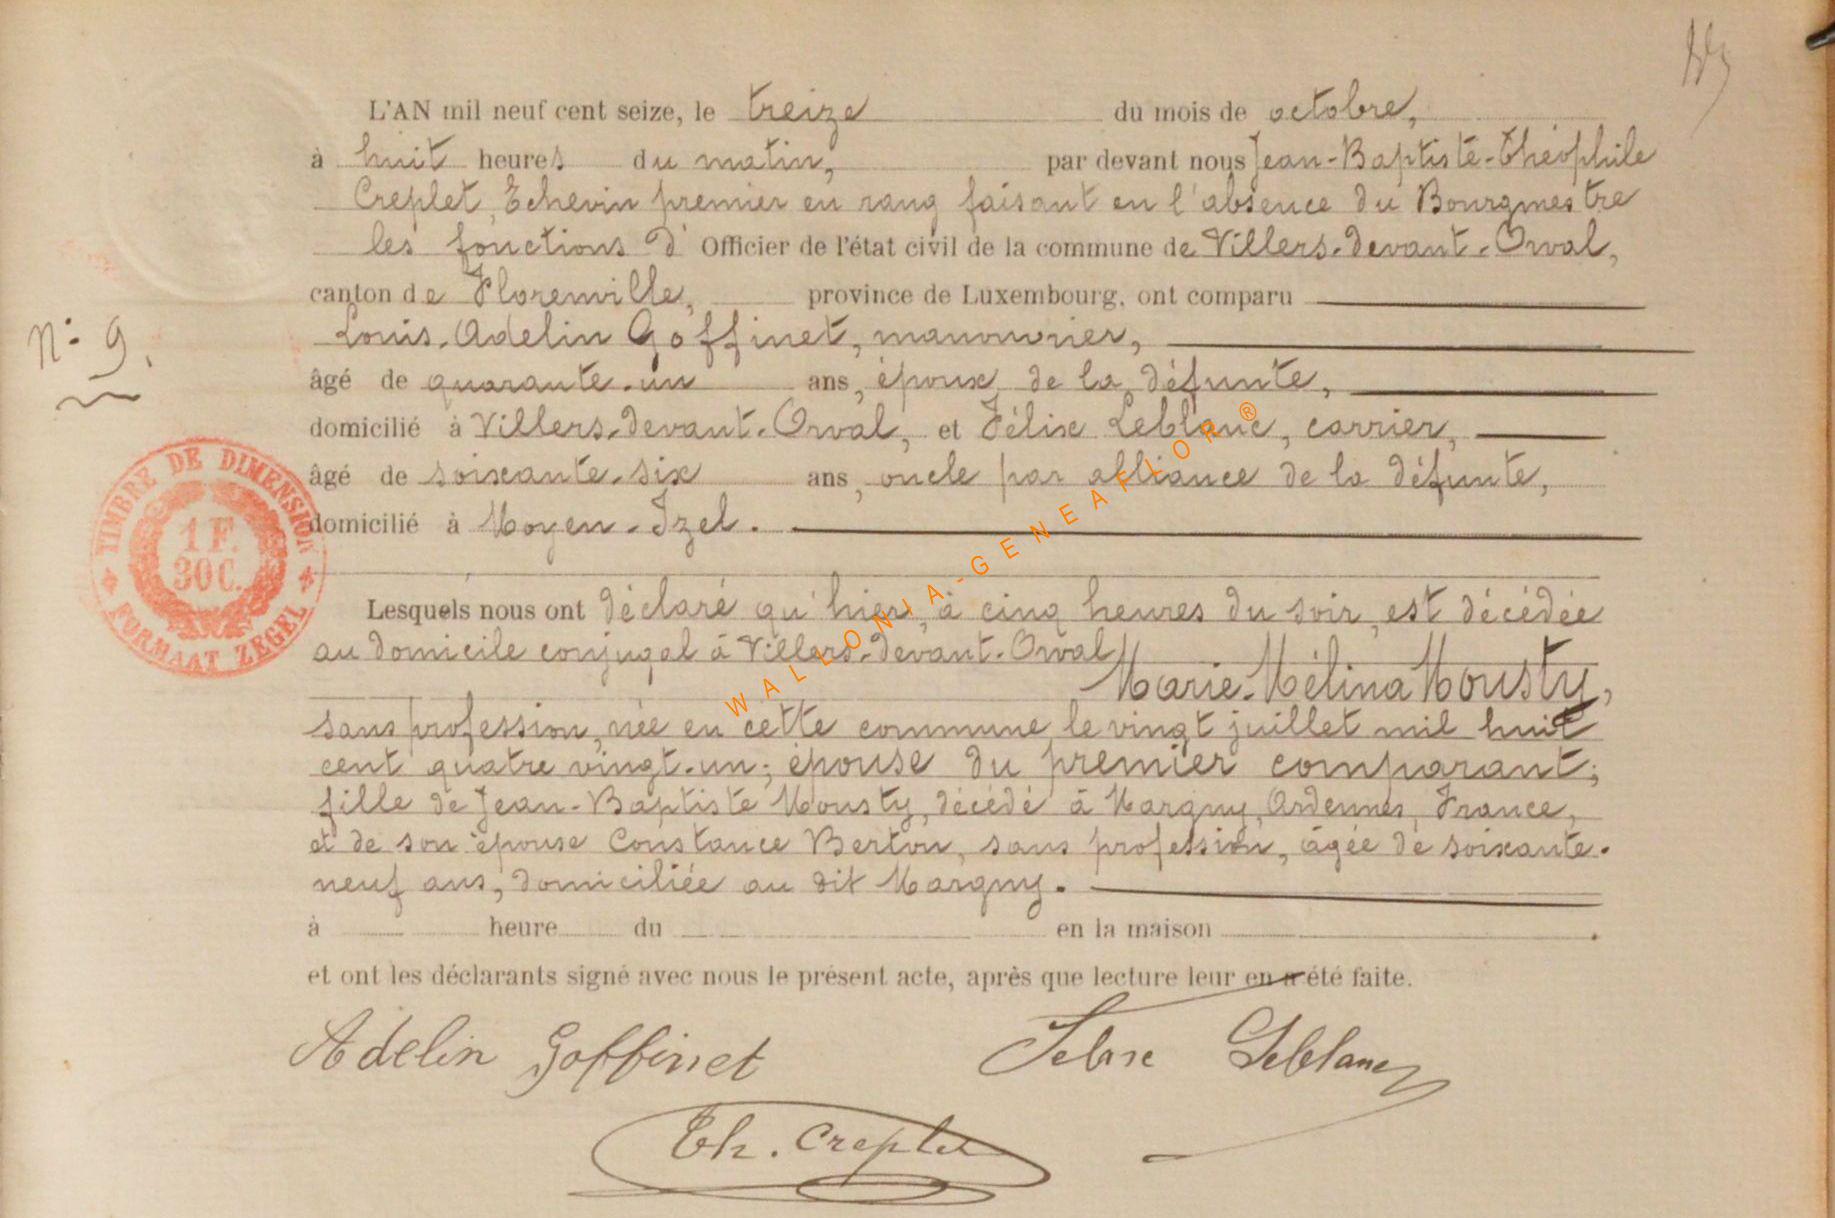 L'AN mil neuf cent seize, le treize du mois de octobre,
à huit heures du matin, par devant nous Jean-Baptiste-Théophile
Creplet, Echevin premier en rang faisant en l'absence du Bourgmestre
les fonctions d' Officier de l'état civil de la commune de Villers-devant-Orval,
canton de Florenville, province de Luxembourg, ont comparu
Louis-Adelin Goffinet, manouvrier,
N° 9.
âgé de quarante-un ans, époux de la défunte,
domicilié à Villers-devant-Orval, et Félix Leblanc, carrier,
âgé de soixante-six ans, oncle par alliance de la défunte,
domicilié à Moyen-Izel.
TIMBRE DE DIMENSION
1 F.
30 C.
FORMAAT ZEGEL
Lesquels nous ont déclaré qu'hier, à cinq heures du soir, est décédée
au domicile conjugal à Villers-devant-Orval
Marie-Mélina Mousty,
sans profession, née en cette commune le vingt juillet mil huit
cent quatre vingt-un; épouse du premier comparant;
fille de Jean-Baptiste Mousty, décédé à Margny, Ardennes, France,
et de son épouse Constance Berton, sans profession, âgée de soixante-
neuf ans, domiciliée au dit Margny.
à heure du en la maison .
et ont les déclarants signé avec nous le présent acte, après que lecture leur en a été faite.
Adelin Goffinet Leblanc
Th. Creplet
WALLONIA-GENEAFLOR®